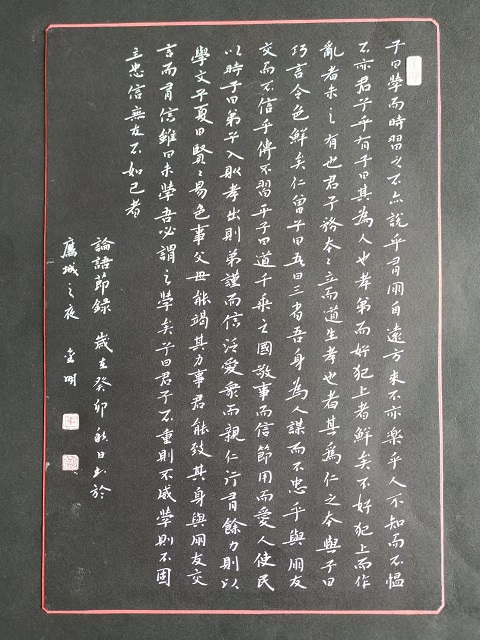 子曰學而時習之不亦說乎有朋自遠方來不亦樂乎人不知而不愠
不亦君子乎有子曰其為人也孝弟而好犯上者鮮矣不好犯上而作
亂者未之有也君子務本本立而道生孝也者其為仁之本與子曰
巧言令色鮮矣仁曾子曰吾日三省吾身為人謀而不忠乎與朋友
交而不信乎傳不習乎子曰道千乘之國敬事而信節用而愛人使民
以時子曰弟子入則孝出則弟謹而信泛愛衆而親仁行有餘力則以
學文子夏曰賢賢易色事父母能竭其力事君能致其身與朋友交
言而有信雖曰未學吾必謂之學矣子曰君子不重則不威學則不固
主忠信無友不如己者
論語節録 歲在癸卯秋日書於
鷹城之夜 明